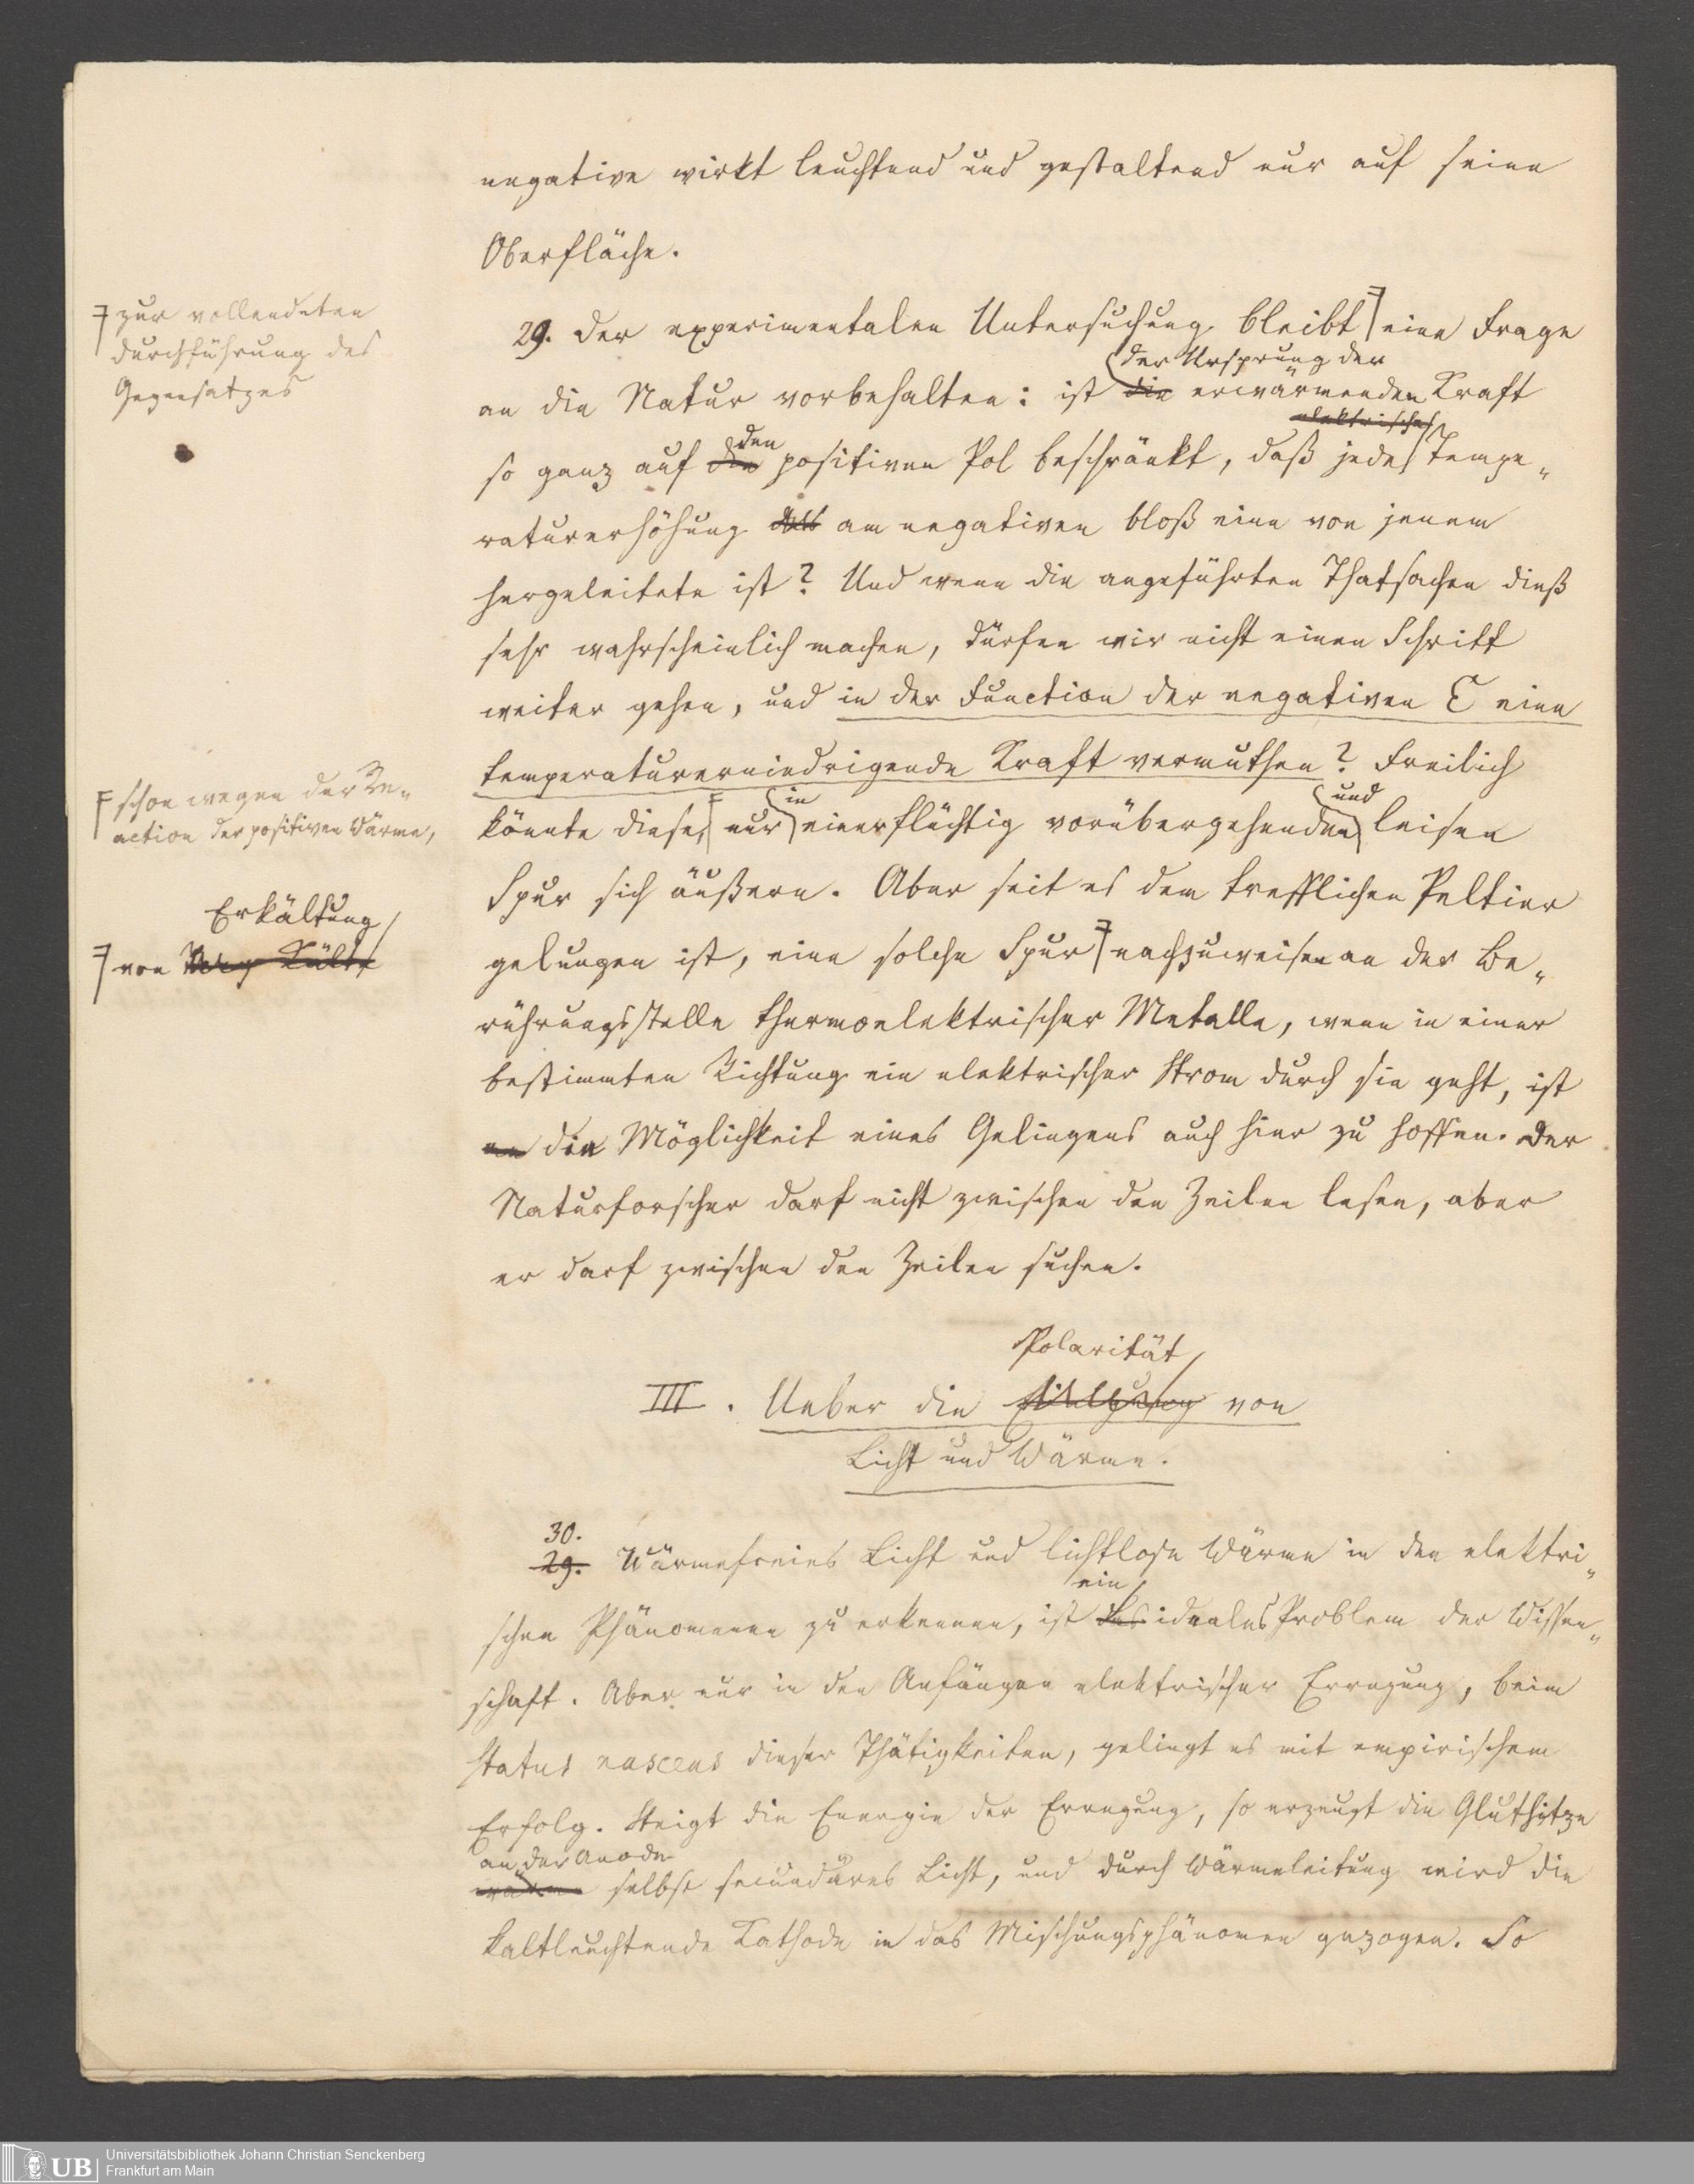 negative wirkt leuchtend und gestaltend nur auf seine
Oberfläche.
zur vollendeten
Durchführung des
Gegensatzes
29. Der experimentalen Untersuchung bleibt eine Frage
der Ursprung der
an die Natur vorbehalten: ist die erwärmenden Kraft
den
elektrische
so ganz auf die positiven Pol beschränkt, daß jede Tempe„
raturerhöhung am negativen bloß eine von jenem
hergeleitete ist? Und wenn die angeführten Thatsachen dieß
sehr wahrscheinlich machen, dürfen wir nicht einen Schritt
weiter gehen, und in der Function der negativen E eine
temperaturerniedrigende Kraft vermuthen? Freilich
schon wegen der Re„
action der positiven Wärme,
in
und
könnte diese, nur einer flüchtig vorübergehenden leisen
Spur sich äußern. Aber seit es dem trefflichen Peltier
Erkältung
von Kälte
gelungen ist, eine solche Spur nachzuweisen an der Be„
rührungsstelle thermoelektrischer Metalle, wenn in einer
bestimmten Richtung ein elektrischer Strom durch sie geht, ist
die Möglichkeit eines Gelingens auch hier zu hoffen. Der
Naturforscher darf nicht zwischen den Zeilen lesen, aber
er darf zwischen den Zeilen suchen.
Polarität
III. Ueber die von
Licht und Wärme.
30.
29. Wärmefreies Licht und lichtlose Wärme in den elektri„
ein
schen Phänomenen zu erkennen, ist das ideales Problem der Wissen„
schaft. Aber nur in den Anfängen elektrischer Erregung, beim
status nascens dieser Thätigkeiten, gelingt es mit empirischem
Erfolg. Steigt die Energie der Erregung, so erzeugt die Gluthitze
an der Anode
selbst secundäres Licht, und durch Wärmeleitung wird die
kaltleuchtende Kathode in das Mischungsphänomen gezogen. So
Universitätsbibliothek Johann Christian Senckenberg
Frankfurt am Main
UB